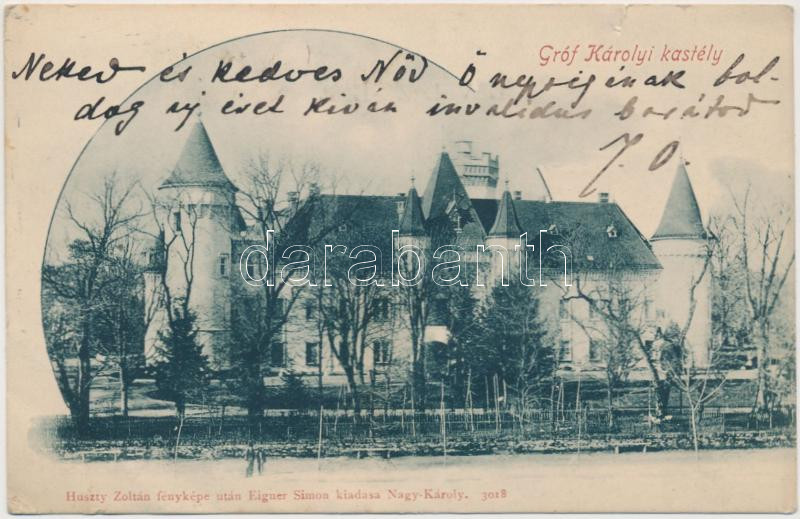 Gróf Károlyi kastély
Neked és kedves Nőd Ő nagyságának bol-
dog új évet kiván invalidus barátod
J. O.
darabanth
Huszty Zoltán fényképe után Eigner Simon kiadasa Nagy-Károly. 3018